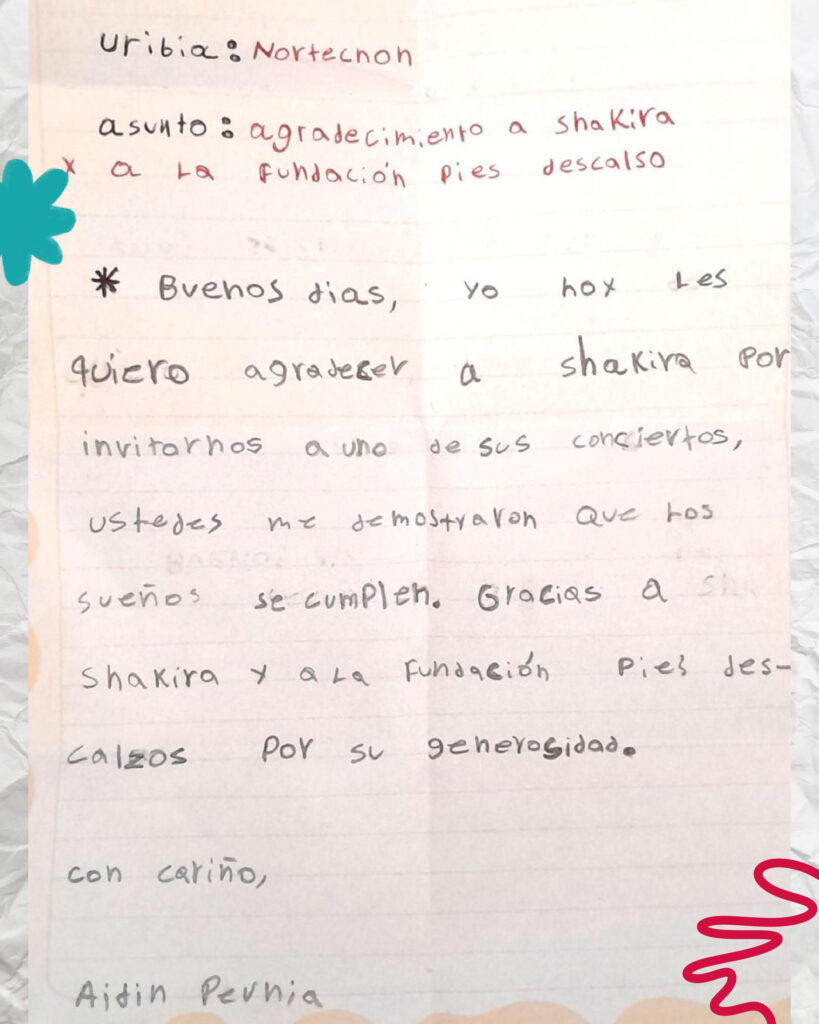 uribia: Nortechon
asunto: agradecimiento a shakira
y a la fundación pies descalso
* Buenos dias, yo hoy les
quiero agradecer a shakira por
invitarnos a uno de sus conciertos,
ustedes me demostraron que los
sueños se cumplen. Gracias a
shakira y a la fundación pies des-
calzos por su generosidad.
con cariño,
Aidin Pernia